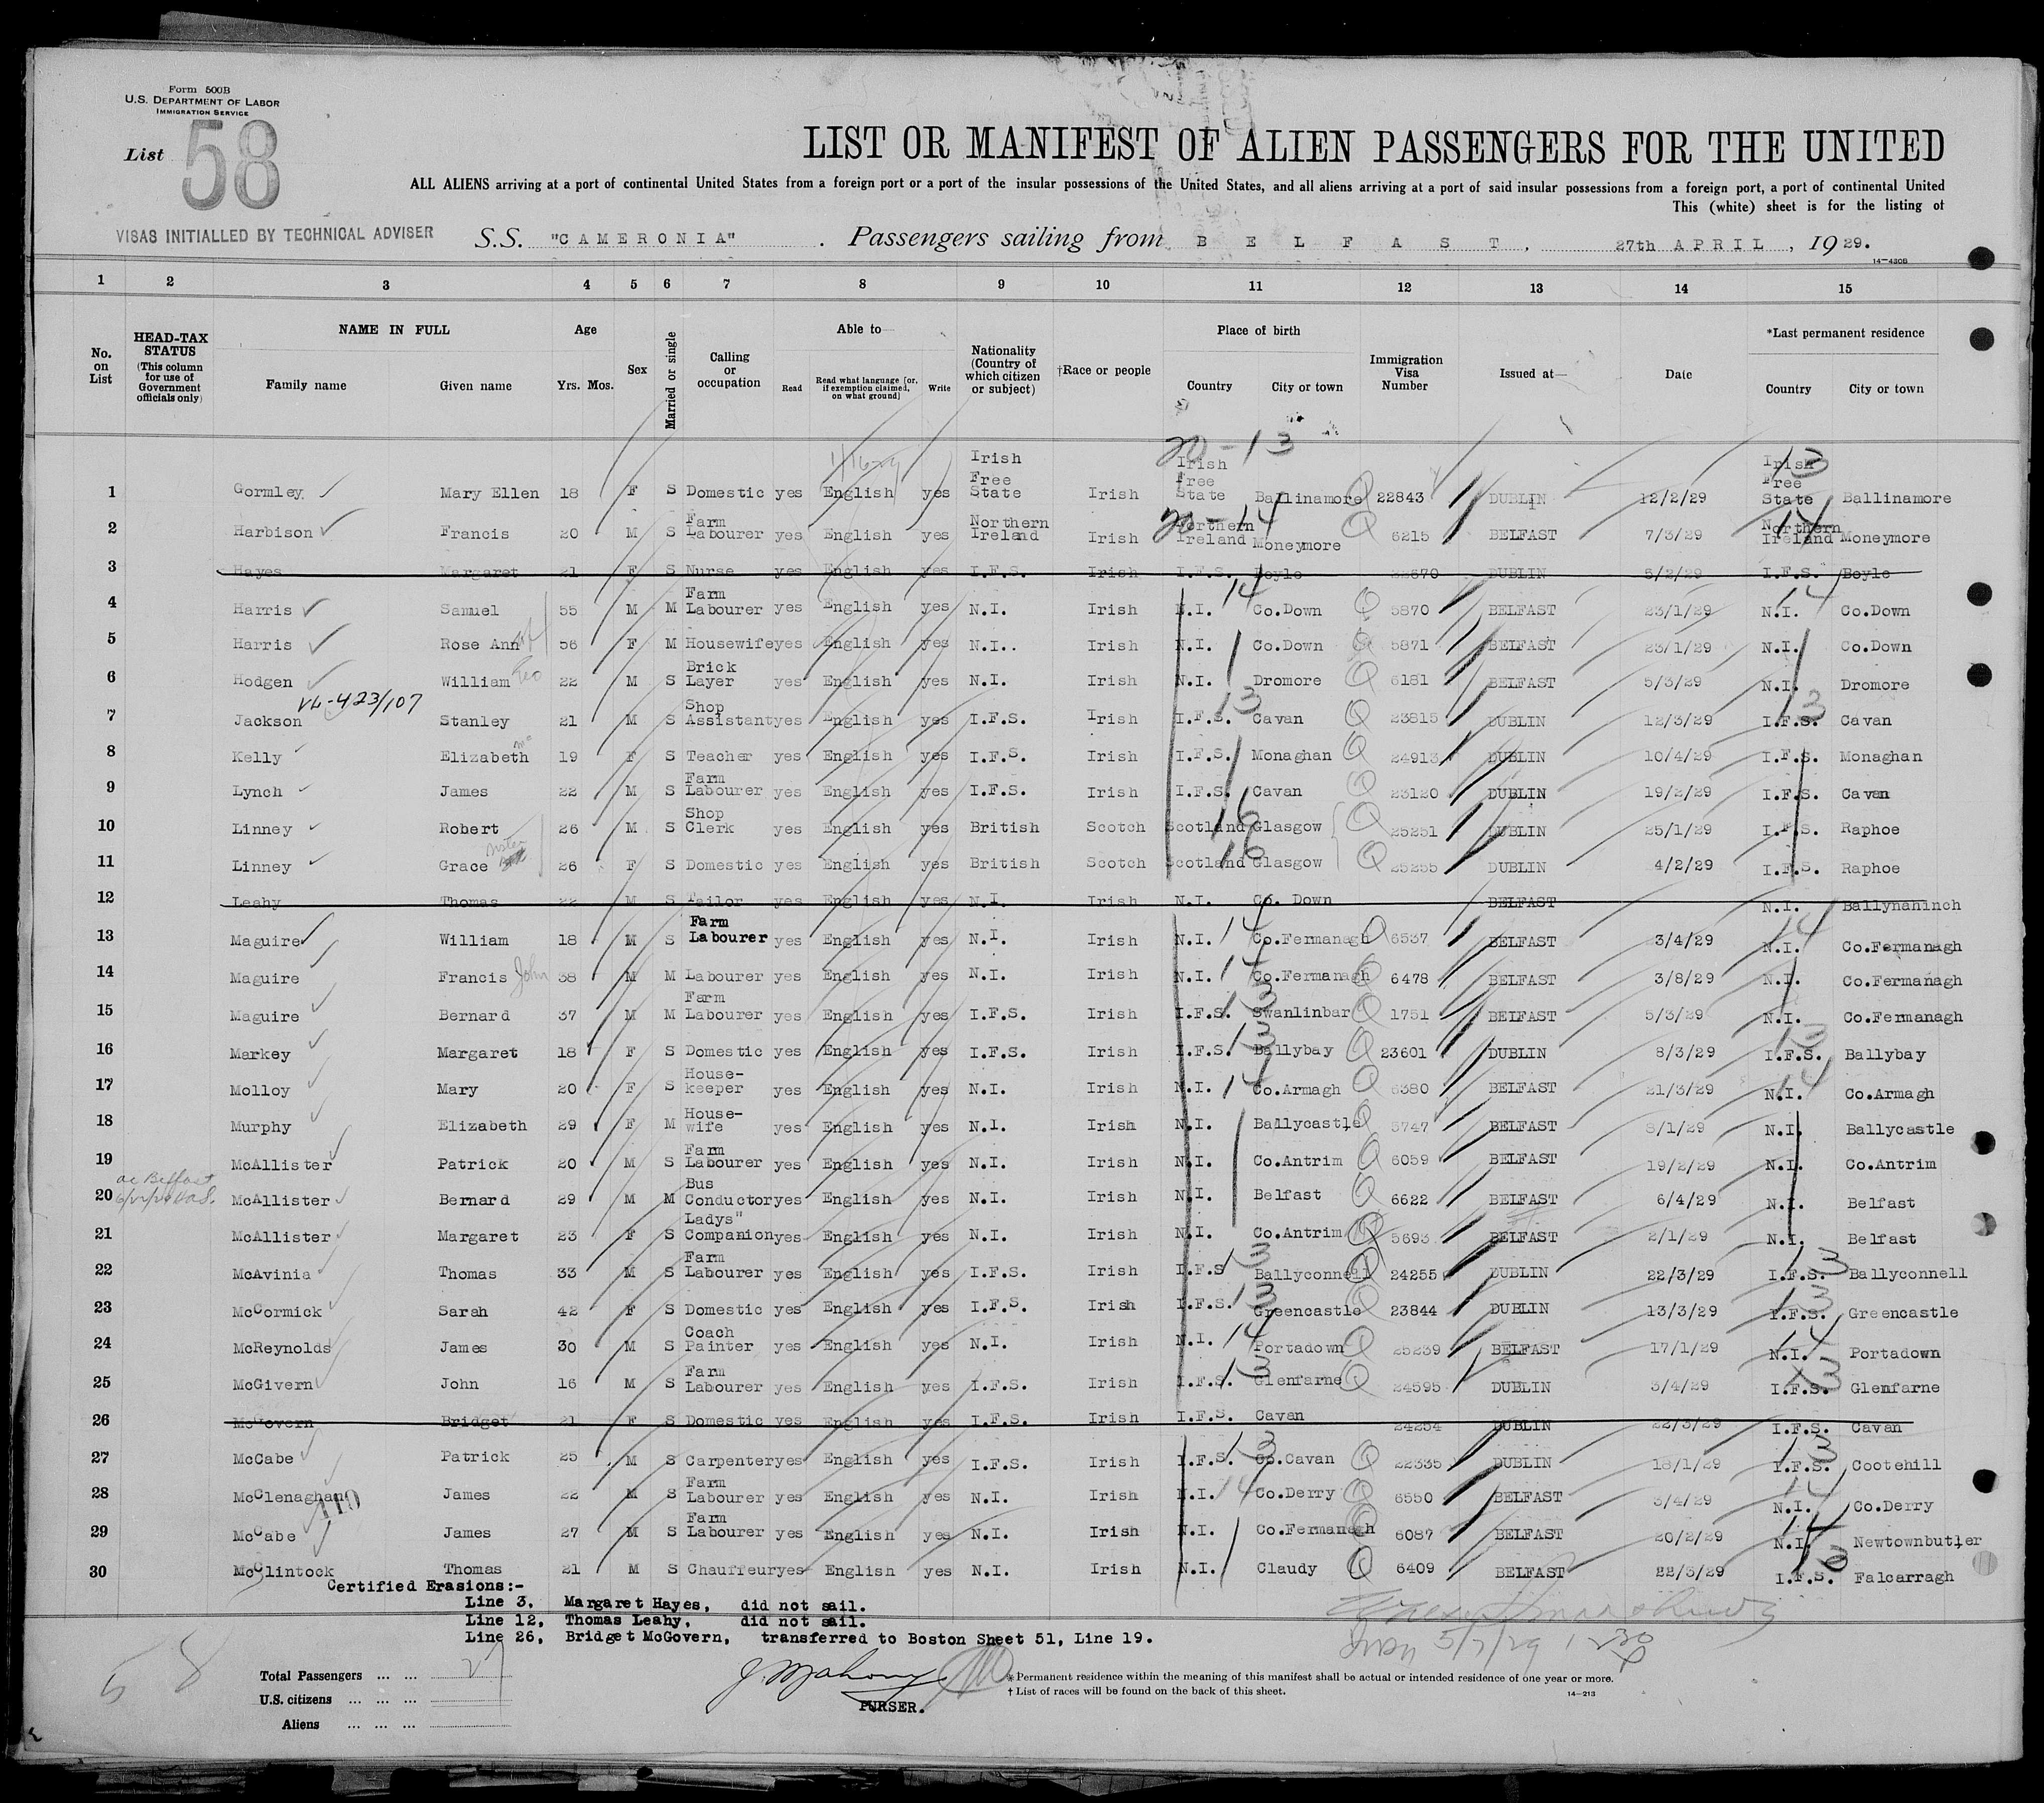 Form 500B
U.S. DEPARTMENT OF LABOR
IMMIGRATION SERVICE
List 58
LIST OR MANIFEST OF ALIEN PASSENGERS FOR THE UNITED
ALL ALIENS arriving at a port of continental United States from a foreign port or a port of the insular possessions of the United States, and all aliens arriving at a port of said insular possessions from a foreign port, a port of continental United
This (white) sheet is for the listing of
VISAS INITIALLED BY TECHNICAL ADVISER
S.S. "CAMERONIA" . Passengers sailing from BELFAST, 27th APRIL, 1929.
14—430B
1 2 3 4 5 6 7 8 9 10 11 12 13 14 15
No. on List HEAD-TAX STATUS (This column for use of Government officials only) NAME IN FULL Family name Given name Age Yrs. Mos. Sex Married or single Calling or occupation Able to— Read Read what language [or, if exemption claimed, on what ground] Write Nationality (Country of which citizen or subject) †Race or people Place of birth Country City or town Immigration Visa Number Issued at— Date *Last permanent residence Country City or town
20-13
1 Gormley Mary Ellen 18 F S Domestic yes English yes Irish Free State Irish Irish Free State Ballinamore 22843 DUBLIN 12/2/29 Irish Free State Ballinamore 13
2 Harbison Francis 20 M S Farm Labourer yes English yes Northern Ireland Irish Northern Ireland Moneymore 6215 BELFAST 7/3/29 Northern Ireland Moneymore 20-14 14
3 Hayes Margaret 21 F S Nurse yes English yes I.F.S. Irish I.F.S. Boyle 22670 DUBLIN 5/2/29 I.F.S. Boyle
4 Harris Samuel 55 M M Farm Labourer yes English yes N.I. Irish N.I. Co.Down 5870 BELFAST 23/1/29 N.I. Co.Down 14 14
5 Harris Rose Ann 56 F M Housewife yes English yes N.I.. Irish N.I. Co.Down 5871 BELFAST 23/1/29 N.I. Co.Down
6 Hodgen William Geo 22 M S Brick Layer yes English yes N.I. Irish N.I. Dromore 6181 BELFAST 5/3/29 N.I. Dromore
VL-423/107
7 Jackson Stanley 21 M S Shop Assistant yes English yes I.F.S. Irish I.F.S. Cavan 23815 DUBLIN 12/3/29 I.F.S. Cavan 13 13
8 Kelly Elizabeth 19 F S Teacher yes English yes I.F.S. Irish I.F.S. Monaghan 24913 DUBLIN 10/4/29 I.F.S. Monaghan
9 Lynch James 22 M S Farm Labourer yes English yes I.F.S. Irish I.F.S. Cavan 23120 DUBLIN 19/2/29 I.F.S. Cavan
10 Linney Robert 26 M S Shop Clerk yes English yes British Scotch Scotland Glasgow 25251 DUBLIN 25/1/29 I.F.S. Raphoe 16
11 Linney Grace sister 26 F S Domestic yes English yes British Scotch Scotland Glasgow 25255 DUBLIN 4/2/29 I.F.S. Raphoe 16
12 Leahy Thomas 22 M S Tailor yes English yes N.I. Irish N.I. Co. Down BELFAST N.I. Ballynahinch
13 Maguire William 18 M S Farm Labourer yes English yes N.I. Irish N.I. Co.Fermanagh 6537 BELFAST 3/4/29 N.I. Co.Fermanagh 14 14
14 Maguire Francis John 38 M M Labourer yes English yes N.I. Irish N.I. Co.Fermanagh 6478 BELFAST 3/8/29 N.I. Co.Fermanagh 14
15 Maguire Bernard 37 M M Farm Labourer yes English yes I.F.S. Irish I.F.S. Swanlinbar 1751 BELFAST 5/3/29 N.I. Co.Fermanagh 13
16 Markey Margaret 18 F S Domestic yes English yes I.F.S. Irish I.F.S. Ballybay 23601 DUBLIN 8/3/29 I.F.S. Ballybay 13 13
17 Molloy Mary 20 F S House-keeper yes English yes N.I. Irish N.I. Co.Armagh 6380 BELFAST 21/3/29 N.I. Co.Armagh 14 14
18 Murphy Elizabeth 29 F M House-wife yes English yes N.I. Irish N.I. Ballycastle 5747 BELFAST 8/1/29 N.I. Ballycastle
19 McAllister Patrick 20 M S Farm Labourer yes English yes N.I. Irish N.I. Co.Antrim 6059 BELFAST 19/2/29 N.I. Co.Antrim
20 McAllister Bernard 29 M M Bus Conductor yes English yes N.I. Irish N.I. Belfast 6622 BELFAST 6/4/29 N.I. Belfast
21 McAllister Margaret 23 F S Ladys" Companion yes English yes N.I. Irish N.I. Co.Antrim 5693 BELFAST 2/1/29 N.I. Belfast
22 McAvinia Thomas 33 M S Farm Labourer yes English yes I.F.S. Irish I.F.S Ballyconnell 24255 DUBLIN 22/3/29 I.F.S. Ballyconnell 13 13
23 McCormick Sarah 42 F S Domestic yes English yes I.F.S. Irish I.F.S. Greencastle 23844 DUBLIN 13/3/29 I.F.S. Greencastle 13 13
24 McReynolds James 30 M S Coach Painter yes English yes N.I. Irish N.I. Portadown 25239 BELFAST 17/1/29 N.I. Portadown 14 14
25 McGivern John 16 M S Farm Labourer yes English yes I.F.S. Irish I.F.S. Glenfarne 24595 DUBLIN 3/4/29 I.F.S. Glenfarne 13 13
26 McGovern Bridget 21 F S Domestic yes English yes I.F.S. Irish I.F.S. Cavan 24254 DUBLIN 22/3/29 I.F.S. Cavan
27 McCabe Patrick 25 M S Carpenter yes English yes I.F.S. Irish I.F.S. Co.Cavan 22335 DUBLIN 18/1/29 I.F.S. Cootehill 13 13
28 McClenaghan James 22 M S Farm Labourer yes English yes N.I. Irish N.I. Co.Derry 6550 BELFAST 3/4/29 N.I. Co.Derry 14 14
110
29 McCabe James 27 M S Farm Labourer yes English yes N.I. Irish N.I. Co.Fermanagh 6087 BELFAST 20/2/29 N.I. Newtownbutler 14
30 McClintock Thomas 21 M S Chauffeur yes English yes N.I. Irish N.I. Claudy 6409 BELFAST 22/3/29 I.F.S. Falcarragh 13
Certified Erasions:-
Line 3, Margaret Hayes, did not sail.
Line 12, Thomas Leahy, did not sail.
Line 26, Bridget McGovern, transferred to Boston Sheet 51, Line 19.
58
Total Passengers ... ... 27
U.S. citizens ... ... ...
Aliens ... ... ...
J. Mahony
PURSER.
* Permanent residence within the meaning of this manifest shall be actual or intended residence of one year or more.
† List of races will be found on the back of this sheet.
14—213